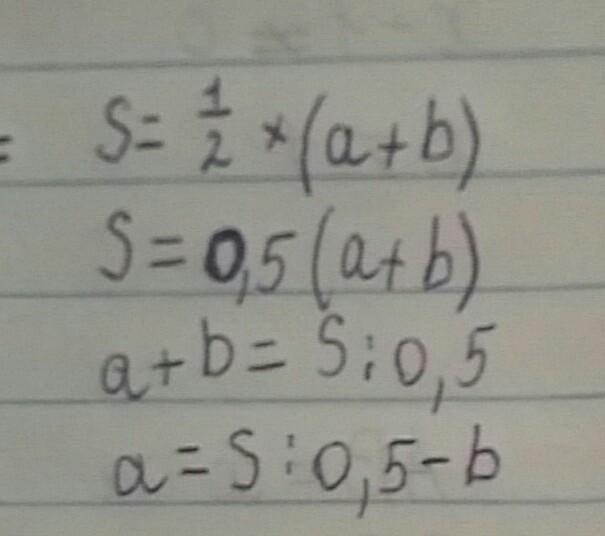 = S = 1/2 × (a + b)
S = 0,5 (a + b)
a + b = S : 0,5
a = S : 0,5 - b